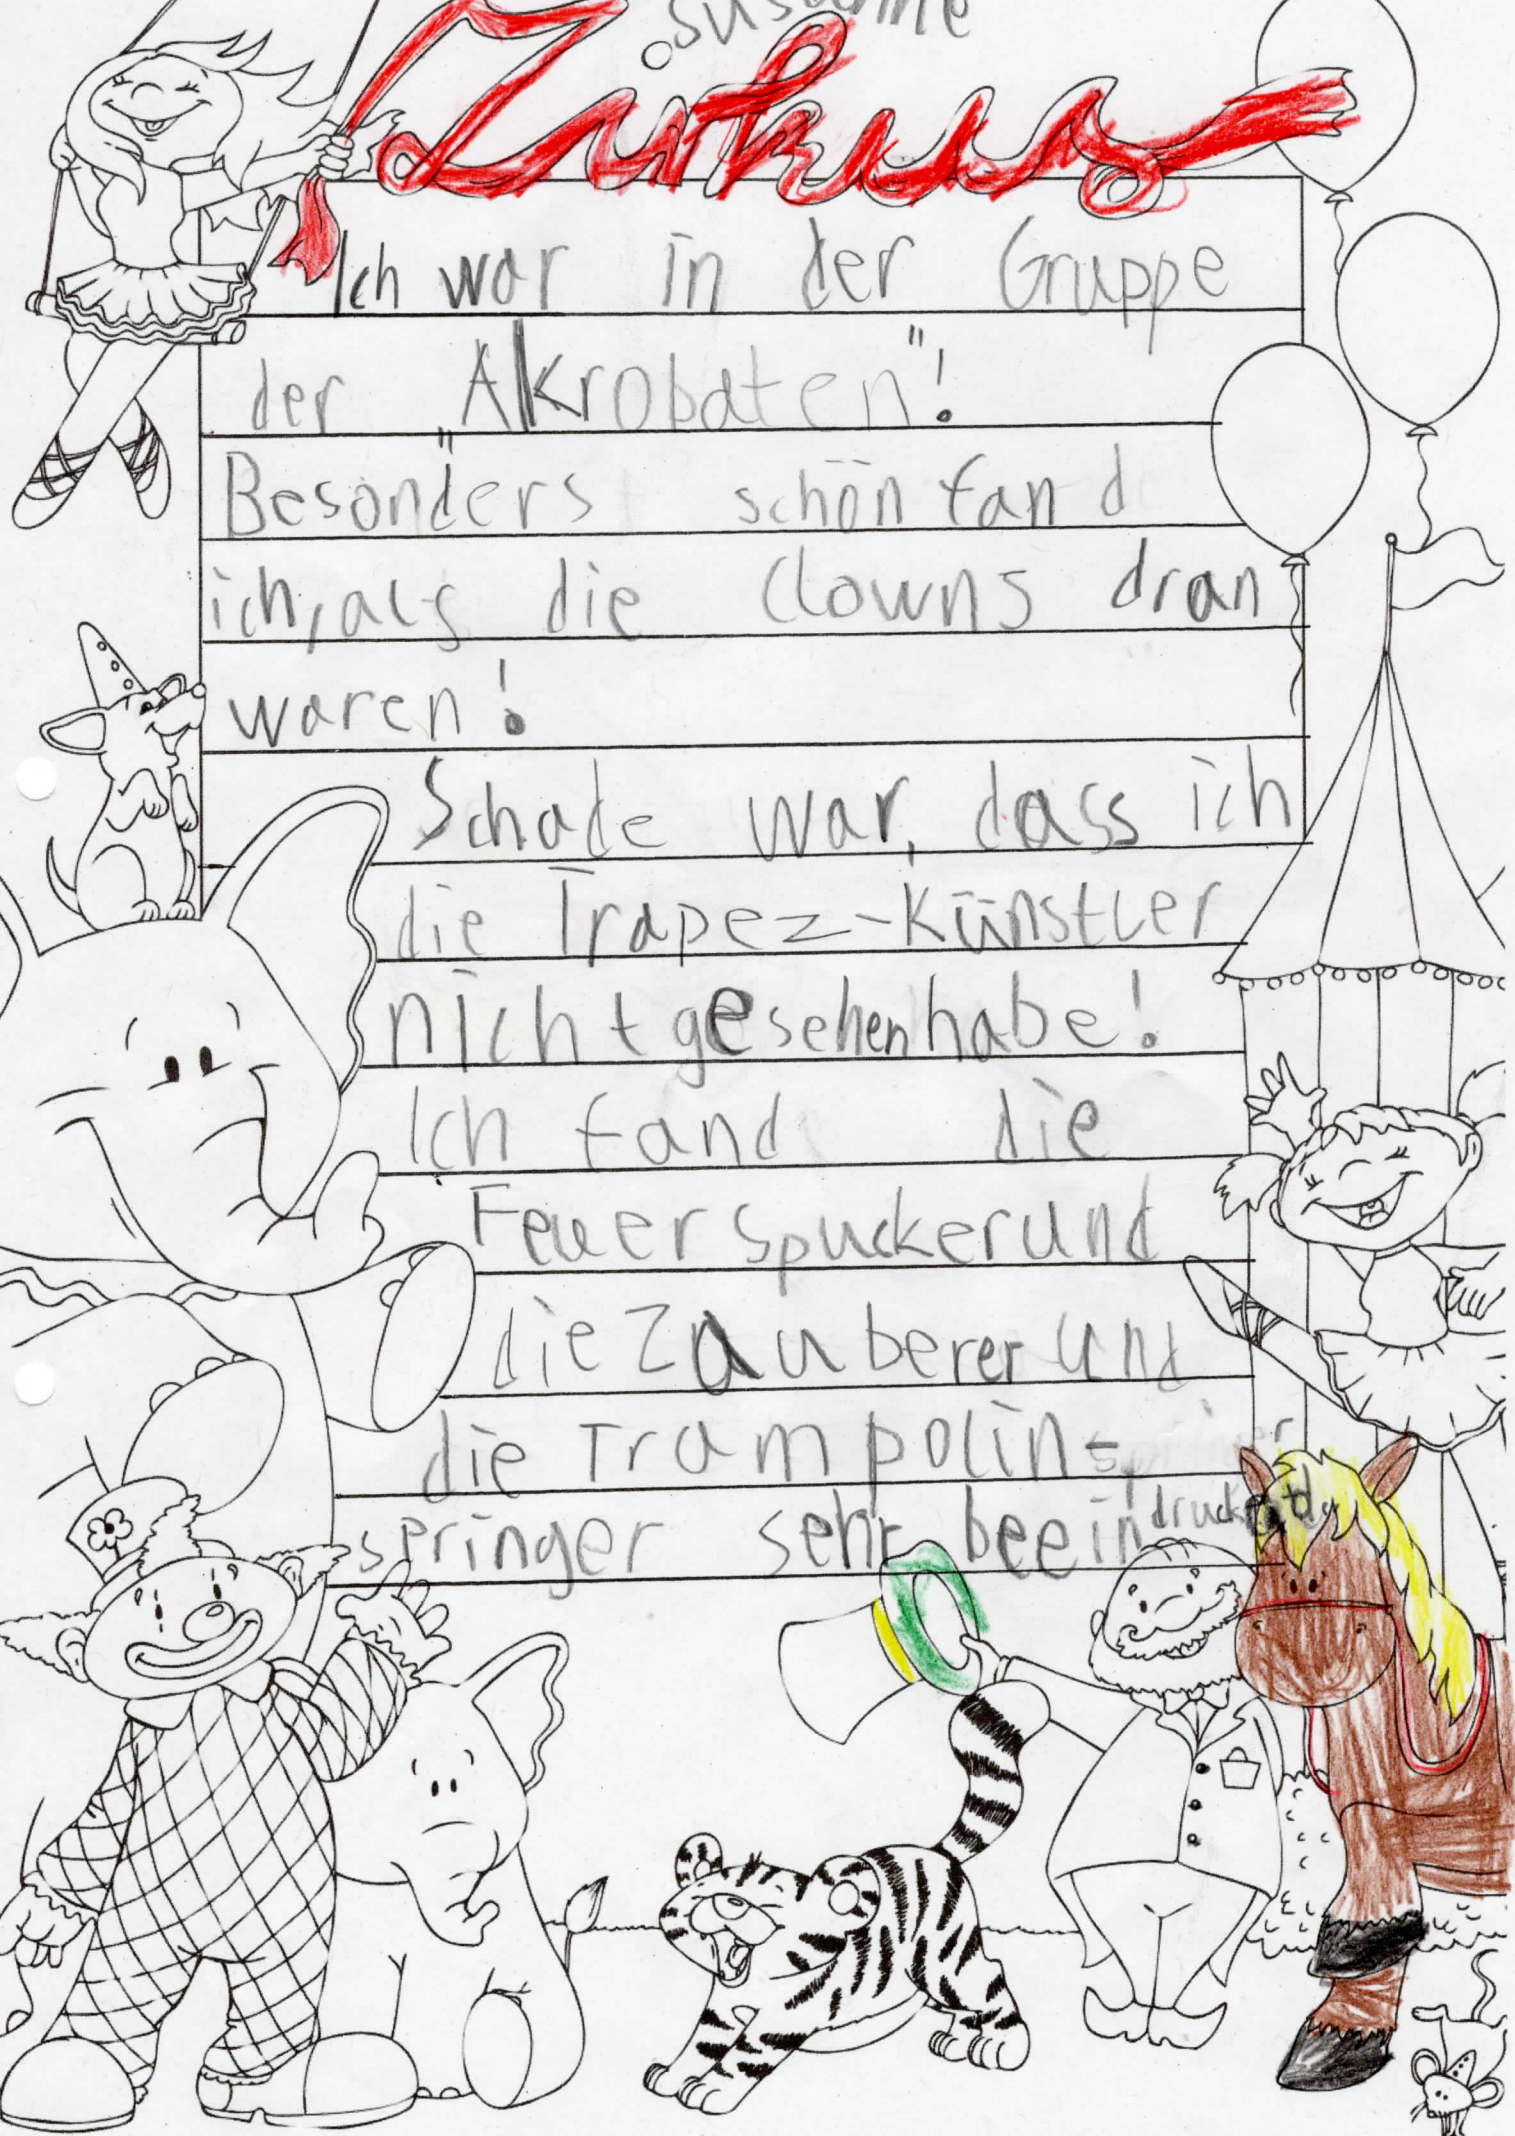 Susanne
Zirkus
Ich war in der Gruppe
der „Akrobaten"!
Besonders schön fand
ich, als die Clowns dran
waren!
Schade war, dass ich
die Trapez-Künstler
nicht gesehen habe!
Ich fand die
Feuerspucker und
die Zauberer und
die Trampolin-
springer sehr beeindruckend